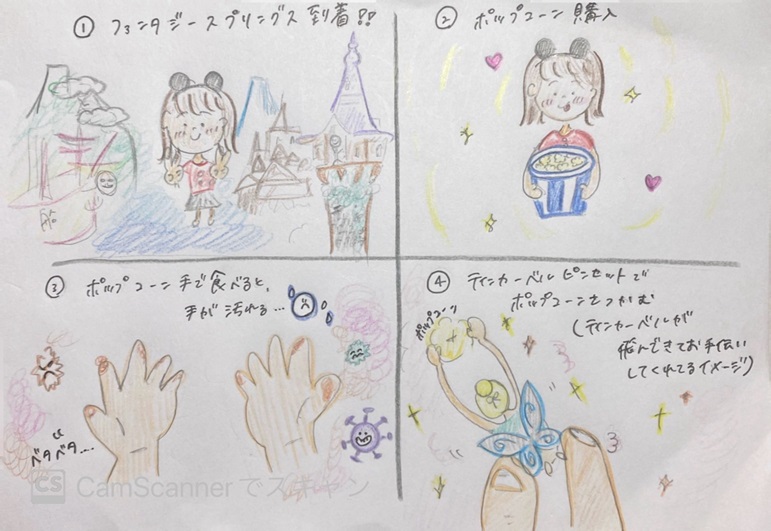 ① ファンタジースプリングス 到着!!
② ポップコーン 購入
船
③ ポップコーン 手で食べると、
手が 汚れる...
ベタベタ...
④ ティンカーベル ピンセットで
ポップコーンをつかむ
(ティンカーベルが
飛んできてお手伝い
してくれてるイメージ)
ポップコーン
CS CamScanner でスキャン